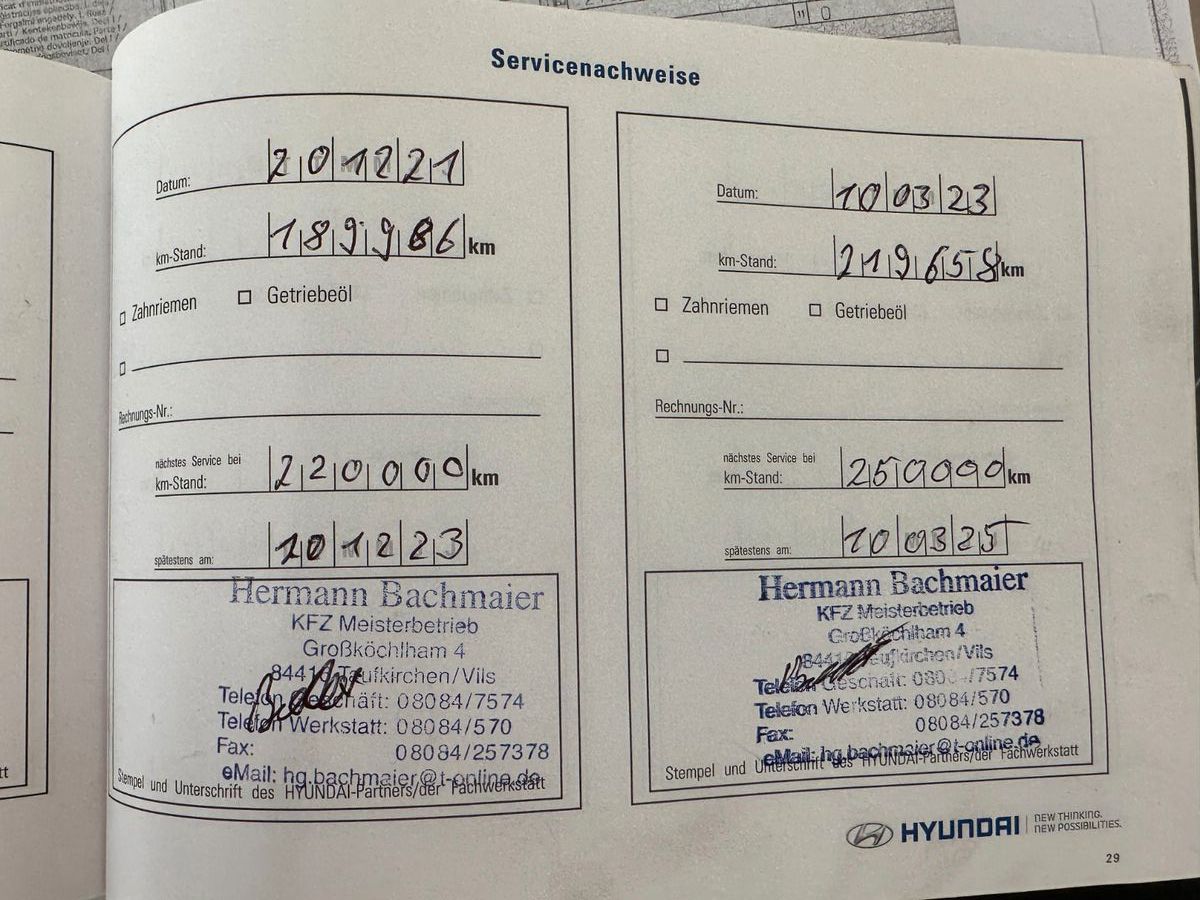 Servicenachweise
Datum: 20 12 21
km-Stand: 189986 km
Zahnriemen Getriebeöl
Rechnungs-Nr.:
nächstes Service bei
km-Stand: 220000 km
spätestens am: 20 12 23
Hermann Bachmaier
KFZ Meisterbetrieb
Großköchlham 4
84416 Taufkirchen/Vils
Telefon Geschäft: 08084/7574
Telefon Werkstatt: 08084/570
Fax: 08084/257378
eMail: hg.bachmaier@t-online.de
Stempel und Unterschrift des HYUNDAI-Partners/der Fachwerkstatt
Datum: 10 03 23
km-Stand: 219658 km
Zahnriemen Getriebeöl
Rechnungs-Nr.:
nächstes Service bei
km-Stand: 250000 km
spätestens am: 10 03 25
Hermann Bachmaier
KFZ Meisterbetrieb
Großköchlham 4
84416 Taufkirchen/Vils
Telefon Geschäft: 08084/7574
Telefon Werkstatt: 08084/570
Fax: 08084/257378
eMail: hg.bachmaier@t-online.de
Stempel und Unterschrift des HYUNDAI-Partners/der Fachwerkstatt
HYUNDAI
NEW THINKING.
NEW POSSIBILITIES.
29